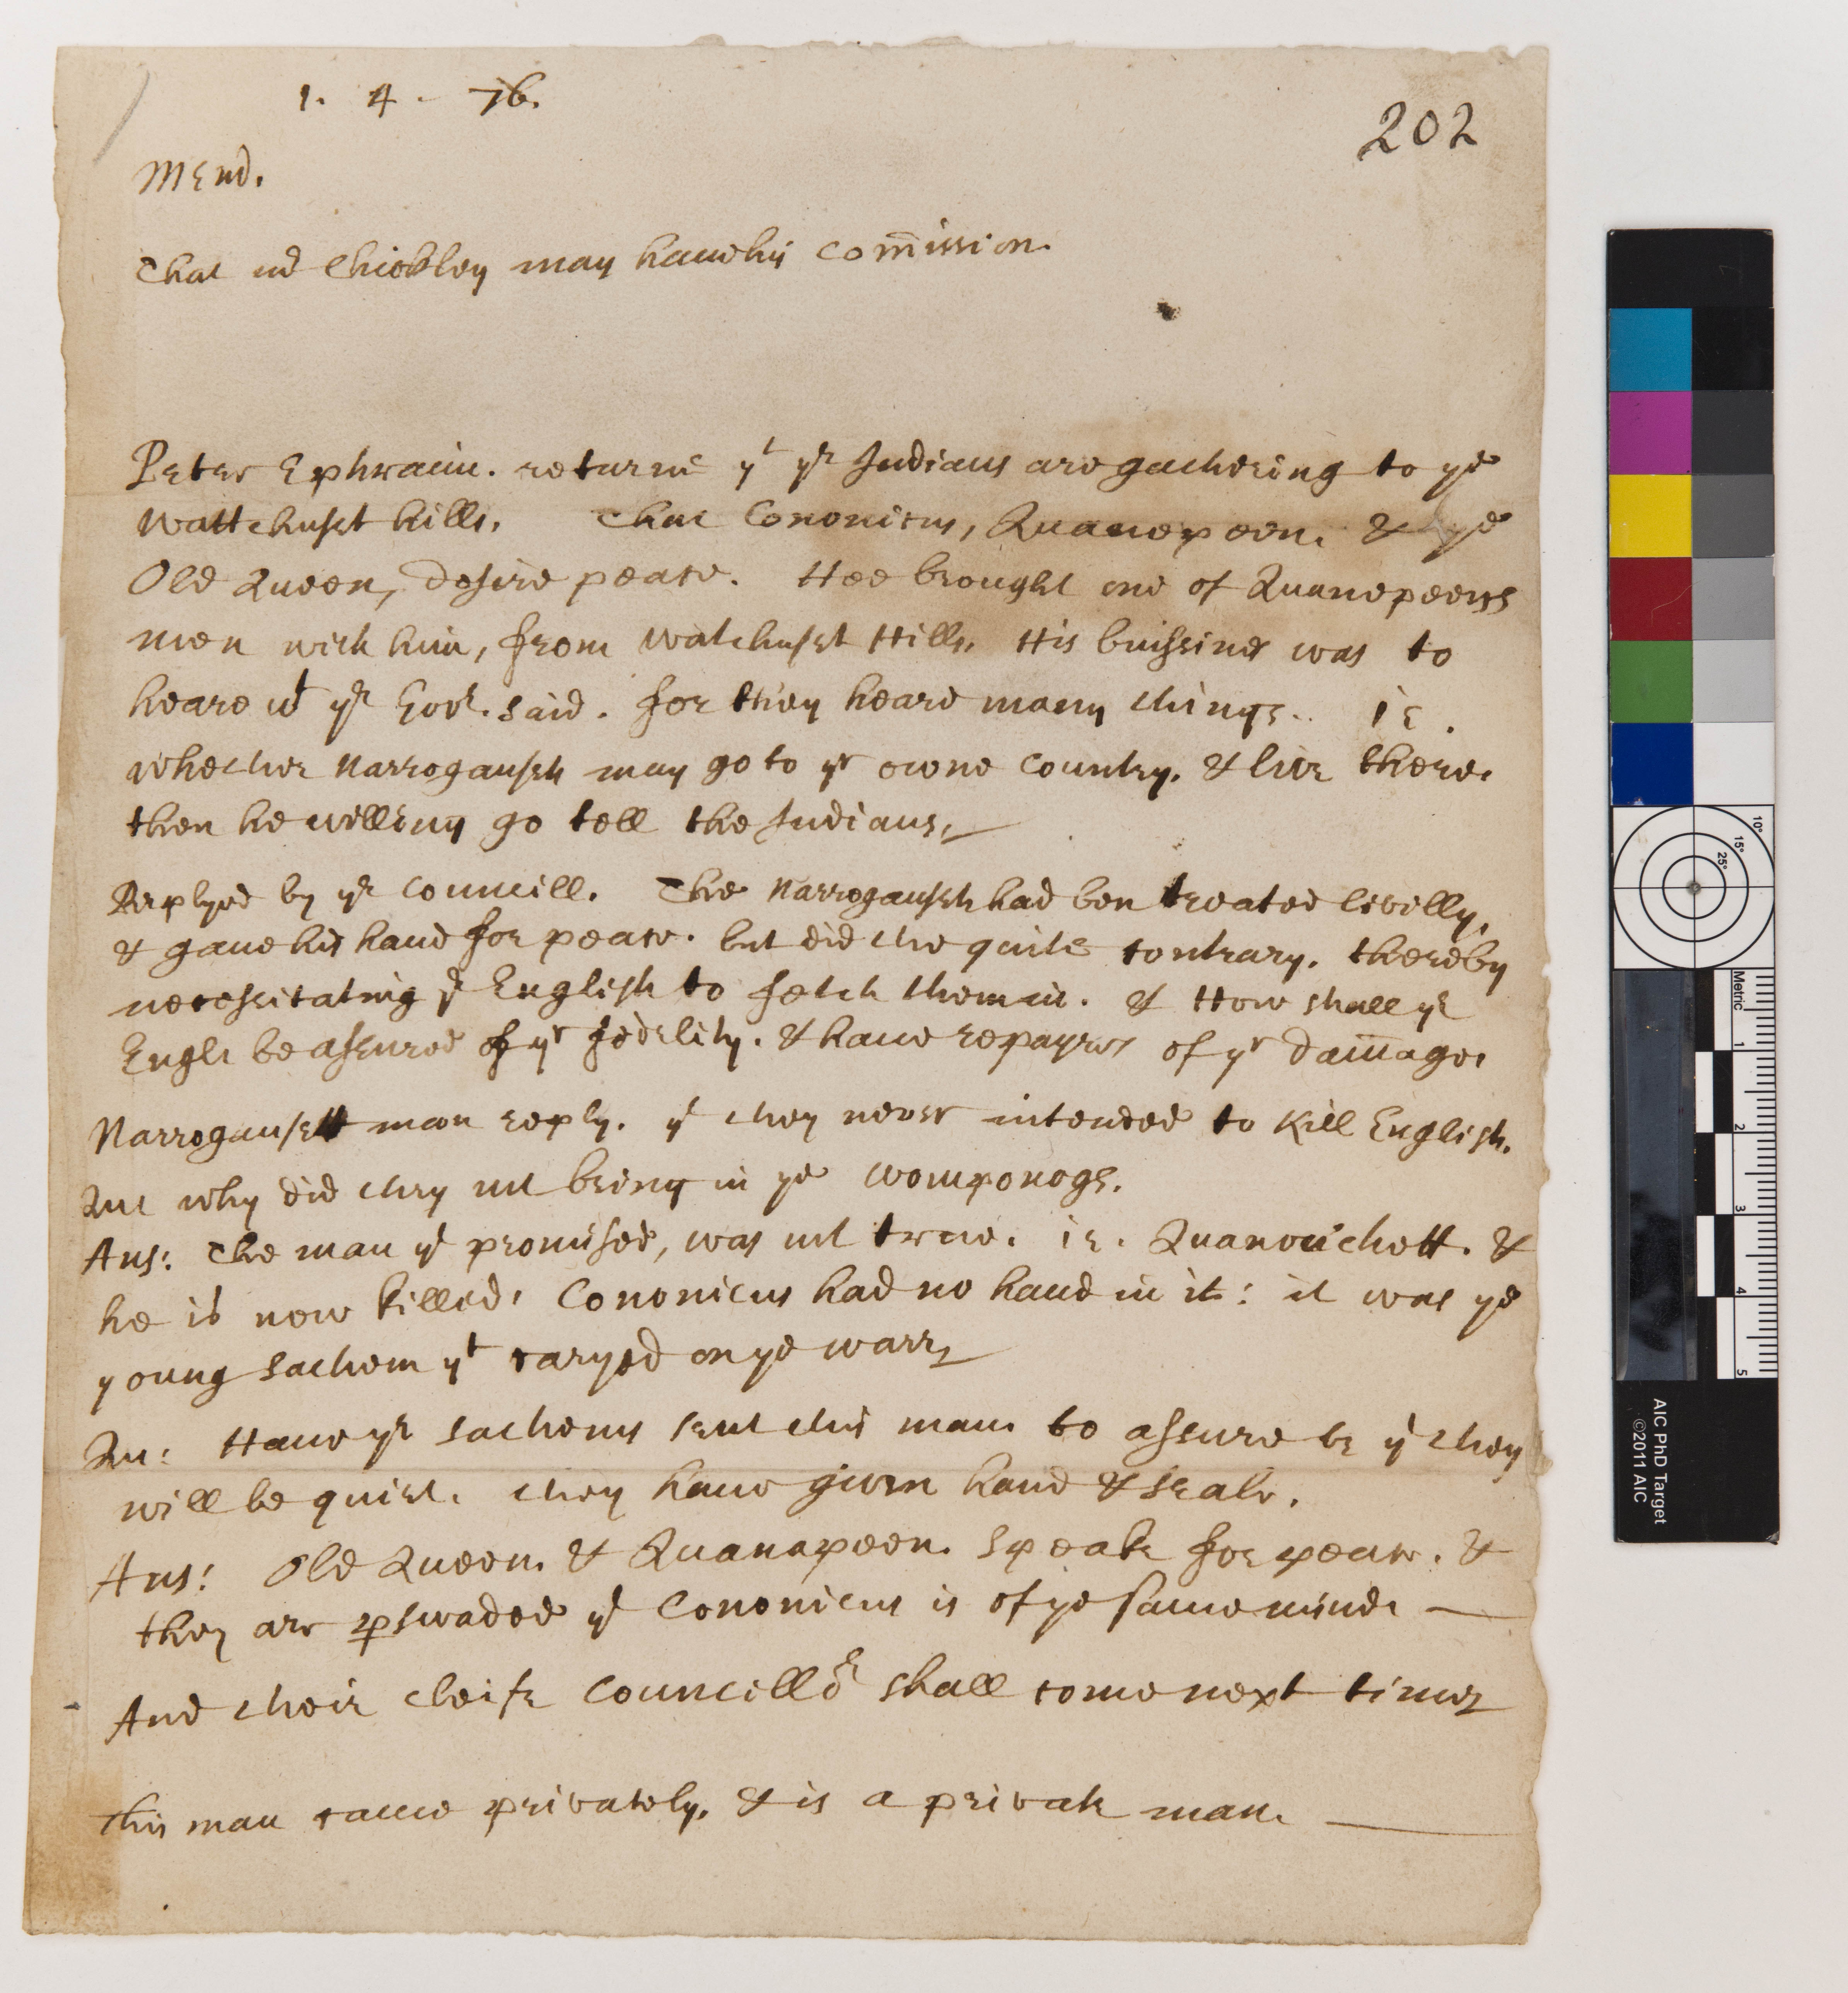 1. 4 - 76.
202
Mend.
That md Chickley may haue his Com̄ission.
Peter Ephraim. returne yt ye Indians are gathering to ye
Wattchuset hills. That Cononicus, Quanepeen. & ye
Old Queen, desire peace. Hee brought one of Quanepeens
men with him, from Watchuset Hills. His buissines was to
heare wt ye Govr. said. for they heare many things. ie.
whether Narrogansets may go to yr owne Country. & live there.
then he willing go tell the Indians.
Replyed by ye Councill. The Narroganseth had ben treated Civilly,
& gaue his hand for peace. but did the quite contrary. thereby
necessitating ye English to fetch them in. & How shall ye
Engl: be assured of yr fidelity. & haue repayres of yr dam̄age.
Narrogansett man reply. yt they never intended to kill English.
Qu: why did they not bring in ye Womponogs.
Ans: The man yt promised, was not true. ie. Quanonchett. &
he is now killed. Cononicus had no hand in it: it was ye
young sachem yt caryed on ye warr
Qu: Haue ye sachems sent this man to assure us yt they
will be quiet. they haue given hand & seale.
Ans: Old Queen. & Quanapeen. speake for peace. &
they are ꝑswaded yt Cononicus is of ye same minde
And their cheife Councillor shall come next time
this man came privately. & is a private man.
10°
15°
25°
Metric
1
2
3
4
5
AIC PhD Target
©2011 AIC